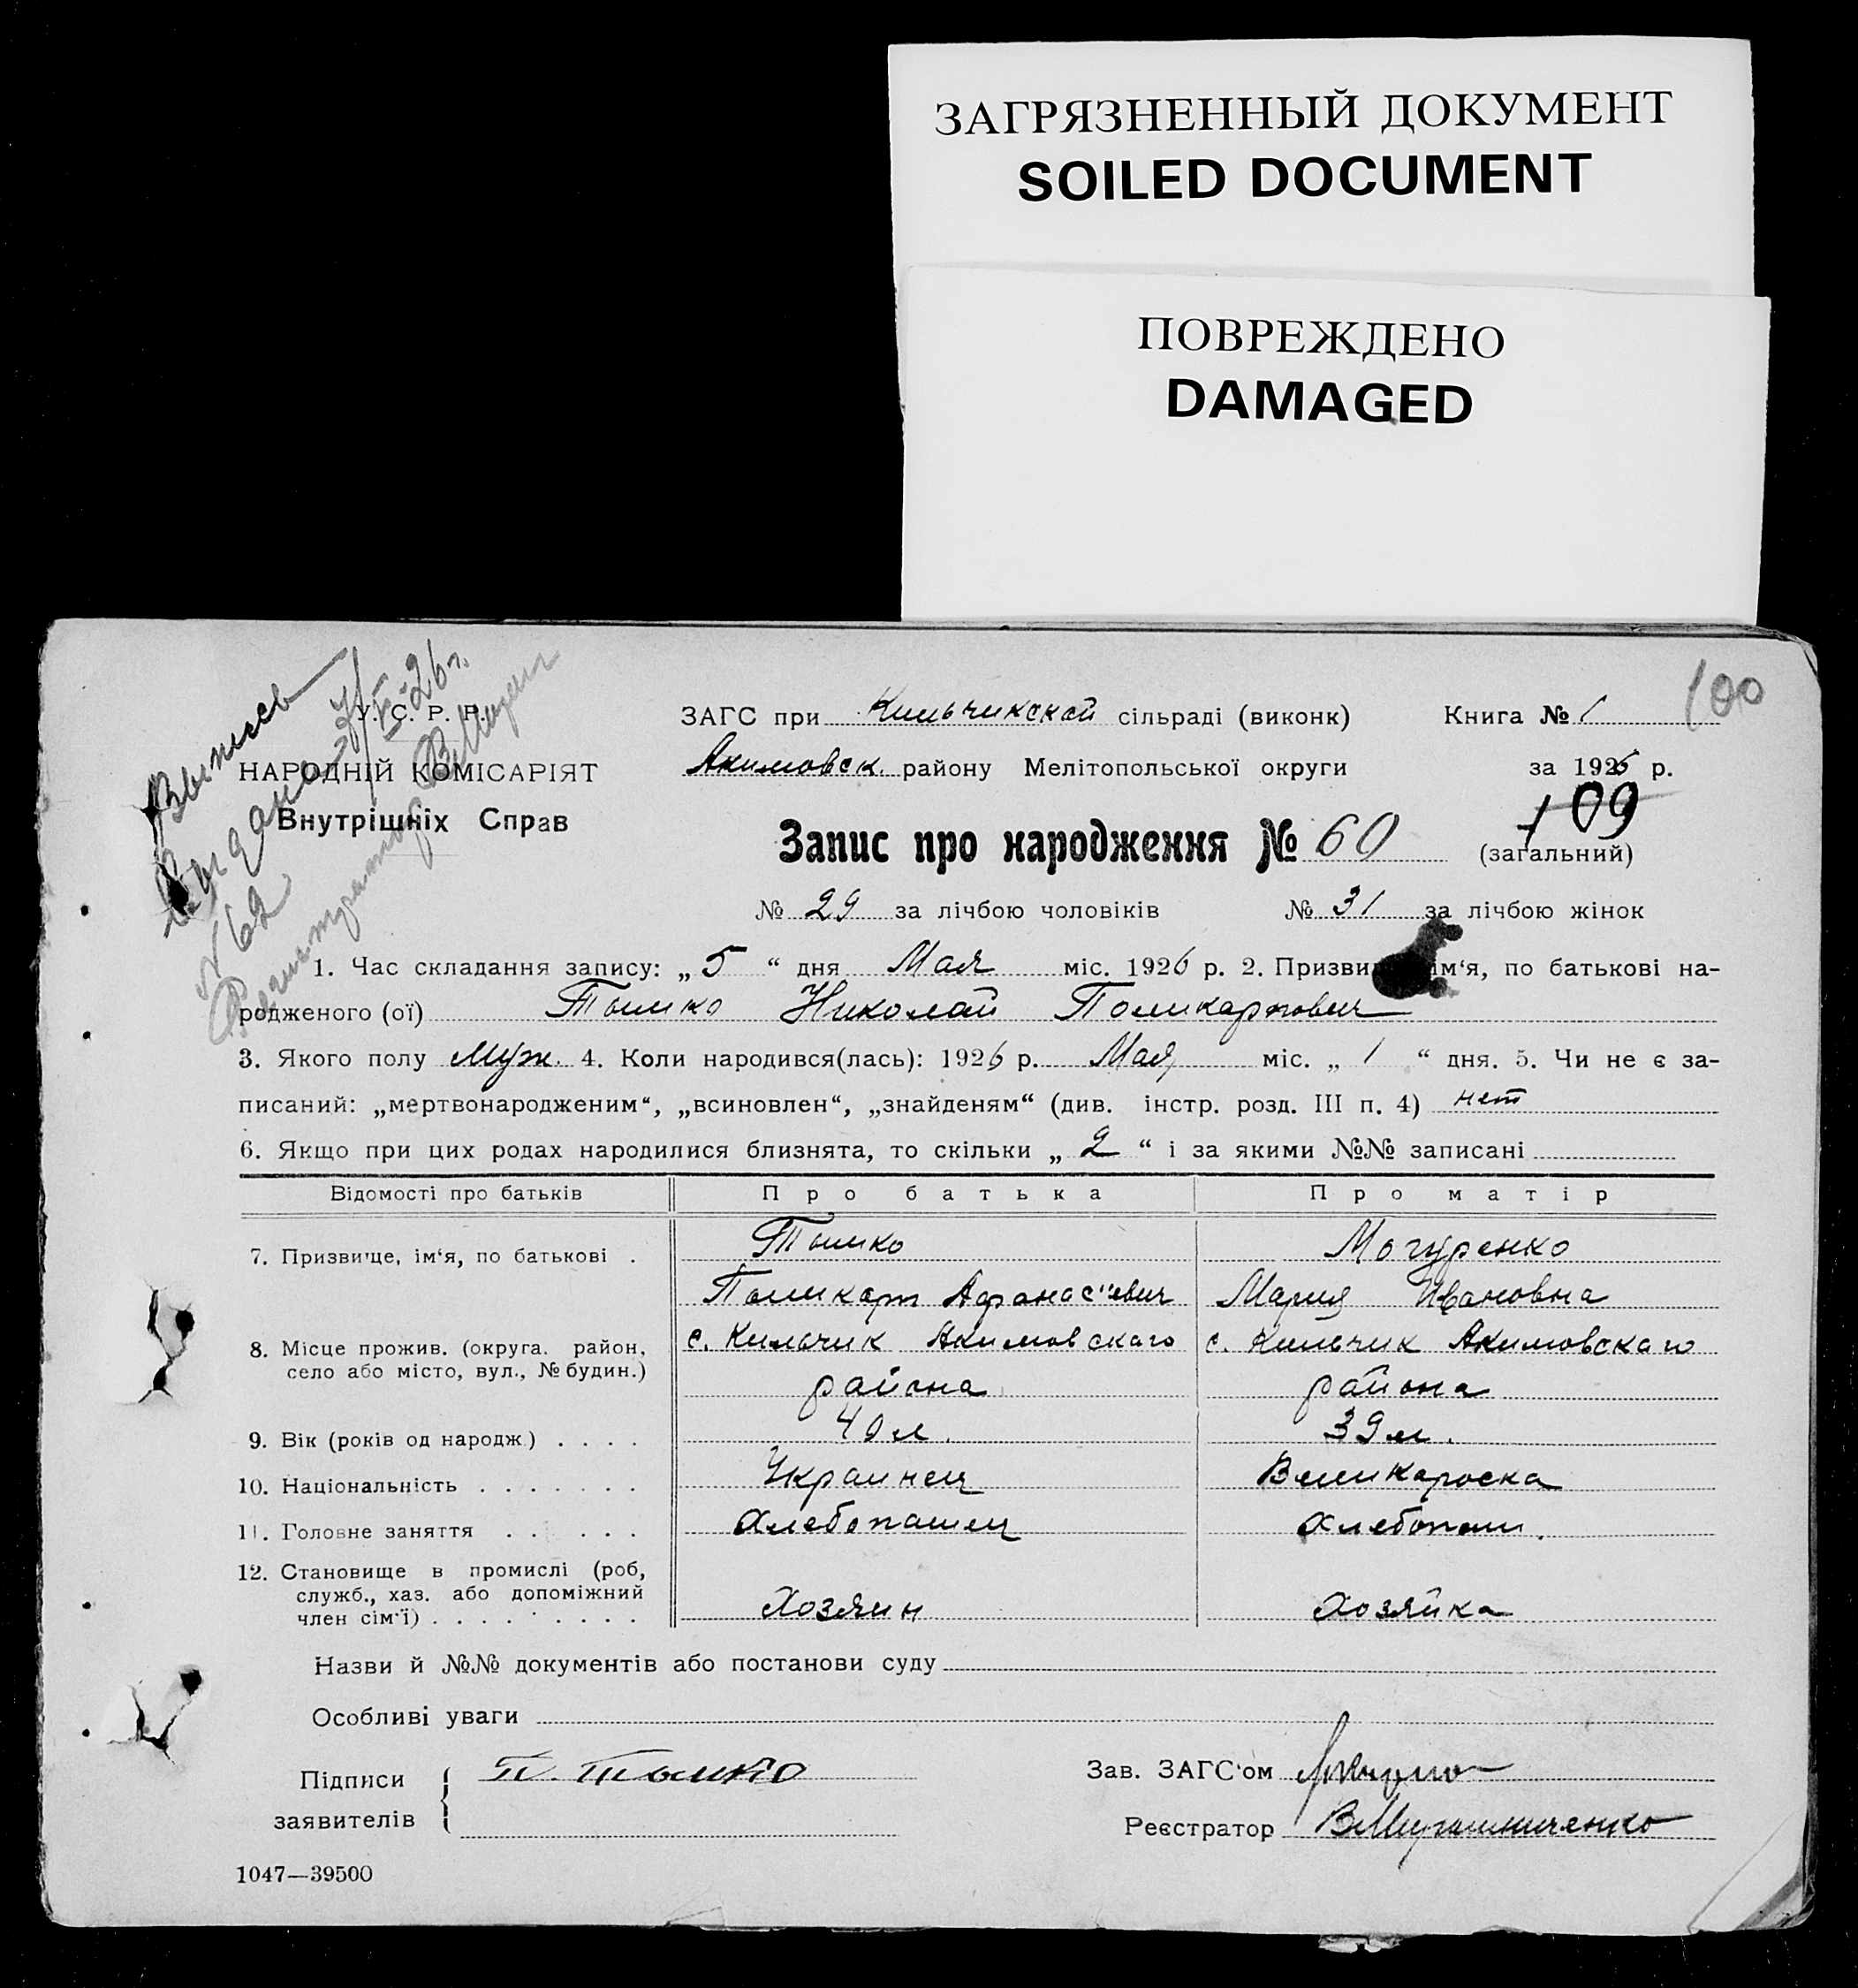 ЗАГРЯЗНЕННЫЙ ДОКУМЕНТ
SOILED DOCUMENT
ПОВРЕЖДЕНО
DAMAGED
100
Выпись
Выдана 7/V-26 г.
№ 62
У. С. Р. Р.
НАРОДНІЙ КОМІСАРІЯТ
Внутрішніх Справ
ЗАГС при Кильчикской сільраді (виконк) Книга № 1
Акимовск. району Мелітопольської округи за 1926 р.
109
Запис про народження № 60 (загальний)
№ 29 за лічбою чоловіків № 31 за лічбою жінок
1. Час складання запису: „ 5 “ дня Мая міс. 1926 р. 2. Призви ім‘я, по батькові на-
родженого (ої) Тымко Николай Поликарпович
3. Якого полу муж. 4. Коли народився(лась): 1926 р. Мая міс. „ 1 “ дня. 5. Чи не є за-
писаний: „мертвонародженим“, „всиновлен“, „знайденям“ (див. інстр. розд. III п. 4) нет
6. Якщо при цих родах народилися близнята, то скільки „ 2 “ і за якими №№ записані
Відомості про батьків Про батька Про матір
7. Призвище, ім‘я, по батькові . Тымко Могуренко
Поликарп Афанас"евич Мария Ивановна
8. Місце прожив. (округа. район, с. Кильчик Акимовскаго с. Кильчик Акимовскаго
село або місто, вул., № будин.) района района
9. Вік (років од народж.) . . . . 40 л. 39 л.
10. Національність . . . . . . . Украинец Великороска
11. Головне заняття . . . . . Хлебопашец Хлебопаш.
12. Становище в промислі (роб,
служб., хаз. або допоміжний
член сім‘ї) . . . . . . . . . Хозяин Хозяйка
Назви й №№ документів або постанови суду
Особливі уваги
Підписи П. Тымко Зав. ЗАГС‘ом
заявителів Реєстратор
1047—39500